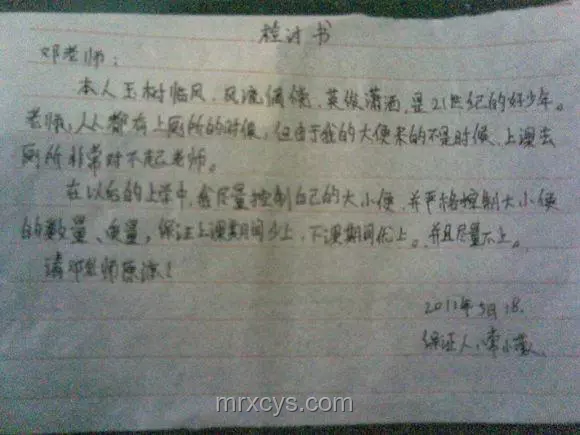 检讨书
邓老师：
本人玉树临风、风流倜傥、英俊潇洒，是21世纪的好少年。
老师，人人都有上厕所的时候，但由于我的大便来的不是时候，上课去
厕所非常对不起老师。
在以后的上学中，我尽量控制自己的大小便，并严格控制大小便
的数量、质量，保证上课期间少上，下课期间优上。并且尽量不上。
请邓老师原谅！
2011年5月18.
保证人：李小
mrxcys.com